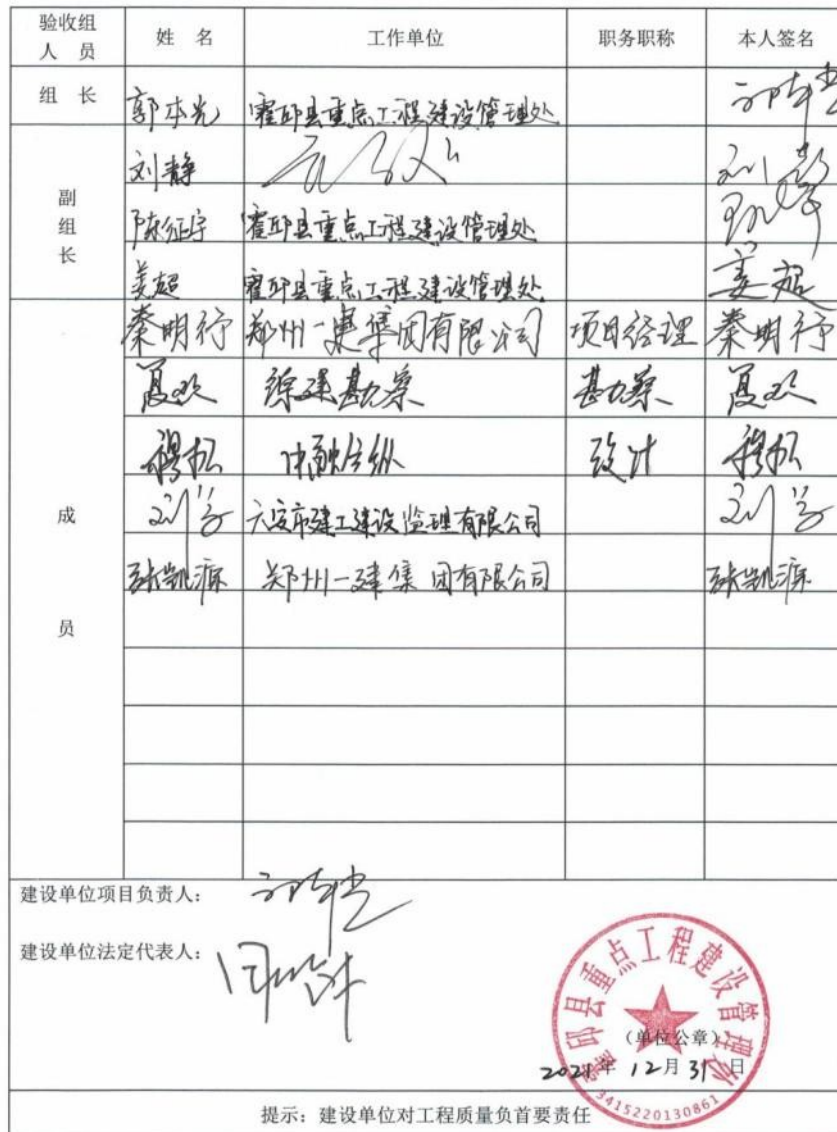 验收组人员 姓 名 工作单位 职务职称 本人签名
组 长 郭本光 霍邱县重点工程建设管理处
副组长 刘静
陈征宇 霍邱县重点工程建设管理处
姜超 霍邱县重点工程建设管理处 姜超
成员 秦明行 郑州一建集团有限公司 项目经理 秦明行
夏欢 勘察 夏欢
穆松 设计 穆松
刘学 六安市建工建设监理有限公司 刘学
张凯源 郑州一建集团有限公司 张凯源
建设单位项目负责人:
建设单位法定代表人:
霍邱县重点工程建设管理处
(单位公章)
2021年 12月 31 日
3415220130861
提示:建设单位对工程质量负首要责任